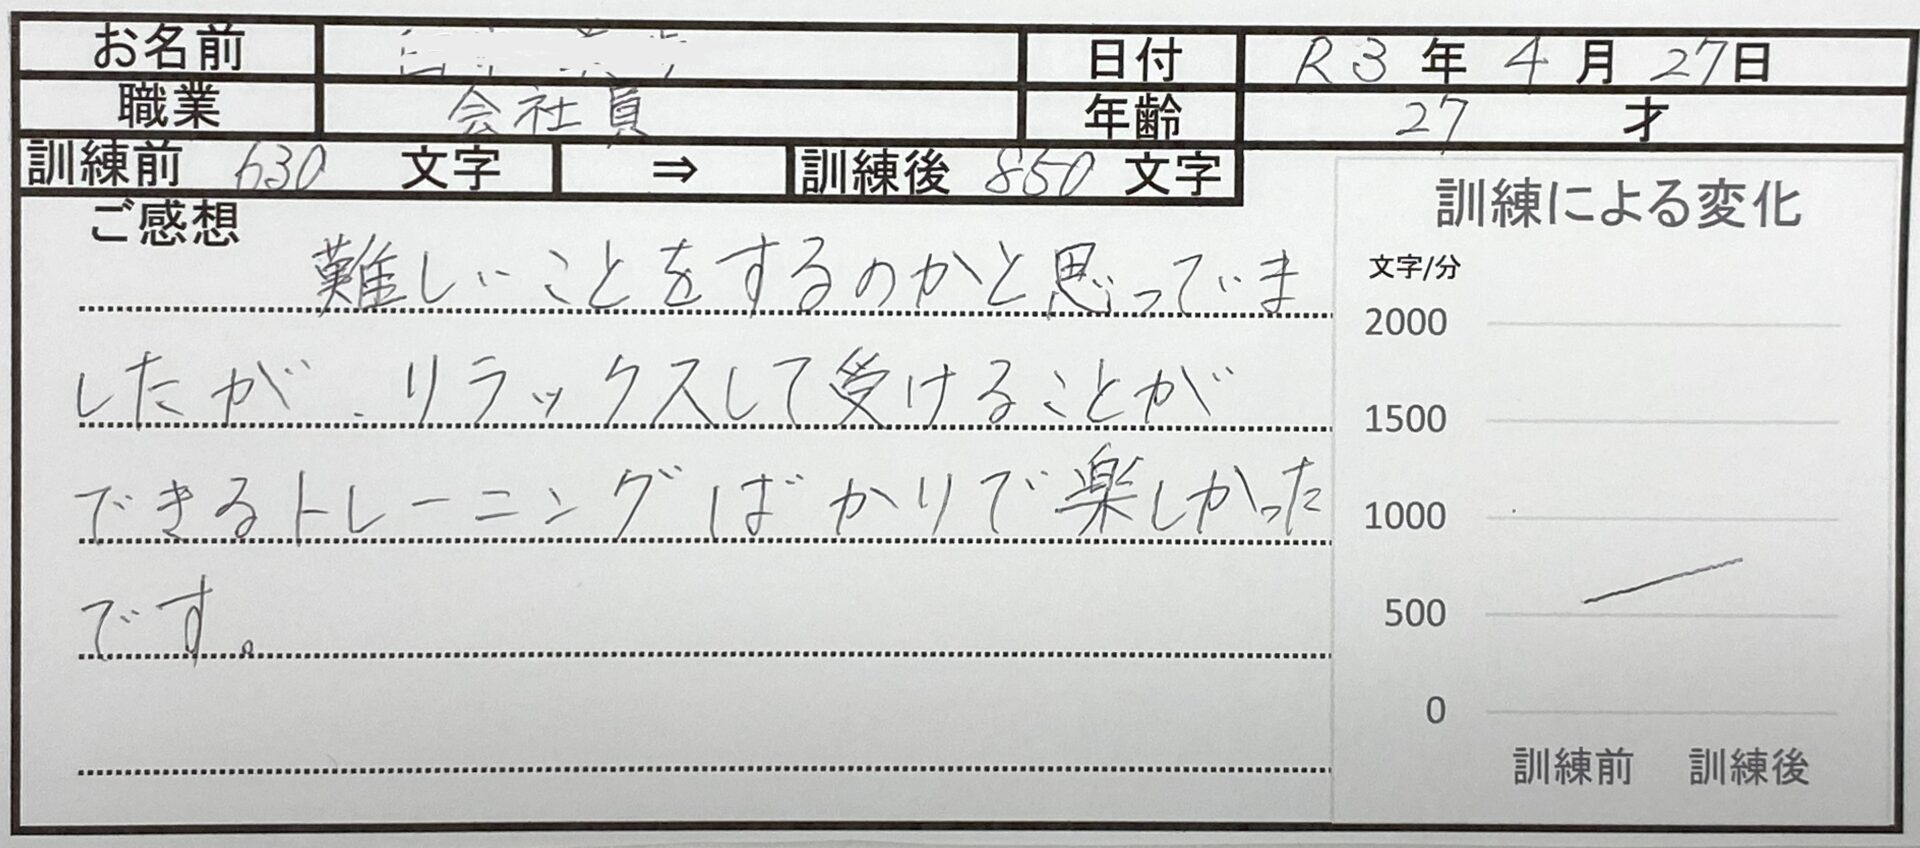 お名前 日付 R3年4月27日
職業 会社員 年齢 27才
訓練前 630 文字 ⇒ 訓練後 850 文字
ご感想
難しいことをするのかと思っていま
したが、リラックスして受けることが
できるトレーニングばかりで楽しかった
です。
訓練による変化
文字/分
2000
1500
1000
500
0
訓練前 訓練後